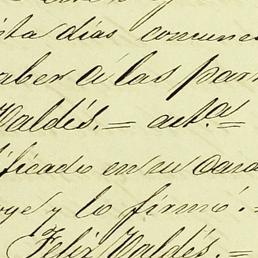 ta dias comune
aber á las par
Valdés.= ast.a=
ificado en su cará
oye y lo firmó.=
Felix Valdés.=